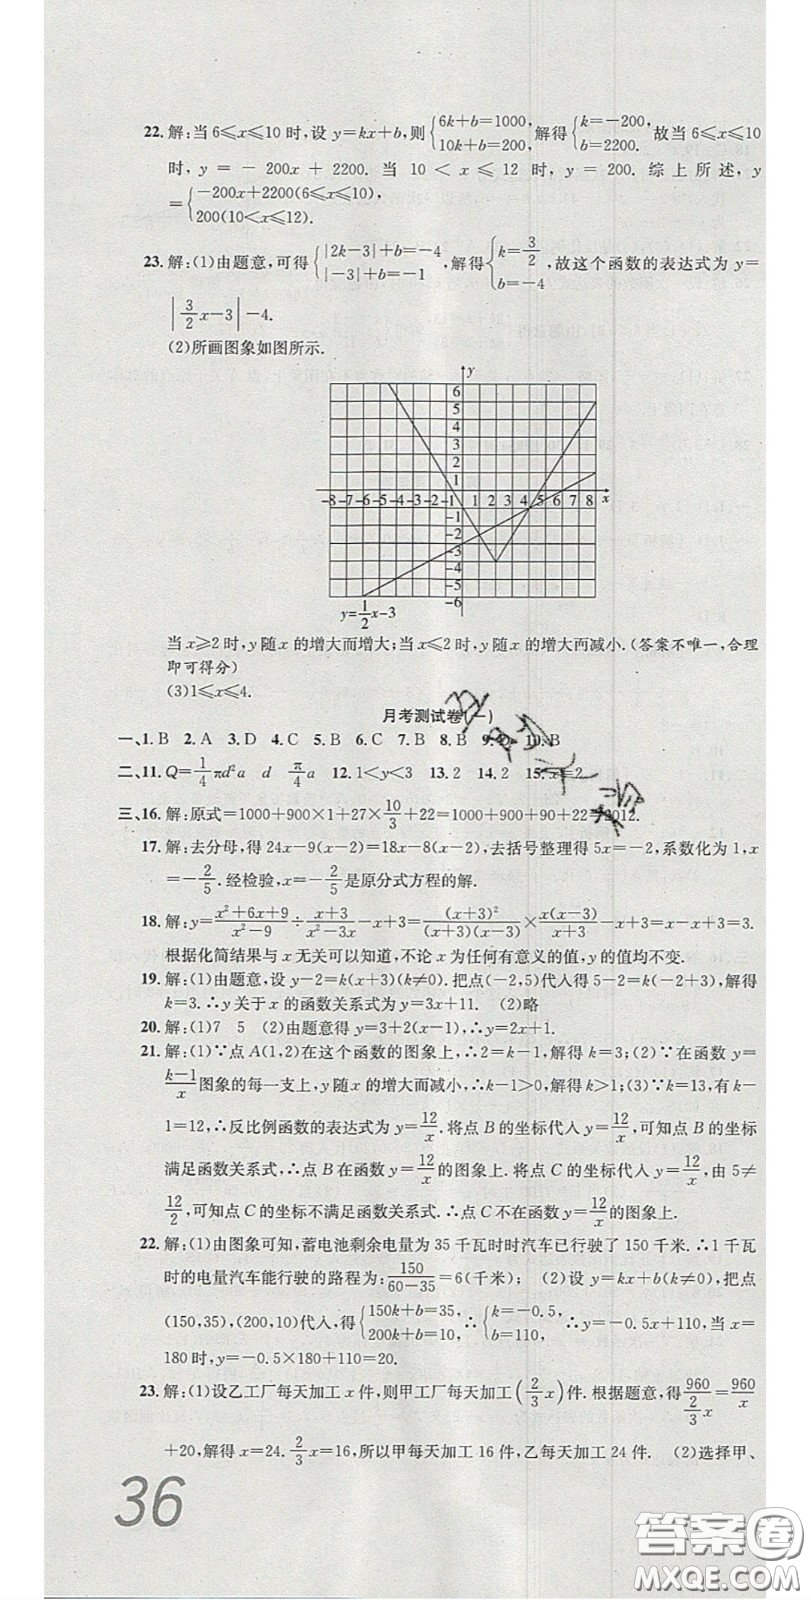 22. 解:当 6≤x≤10 时,设 y=kx+b,则{6k+b=1000, 10k+b=200, 解得{k=-200, b=2200. 故当 6≤x≤10
时, y = - 200x + 2200. 当 10 < x ≤ 12 时, y = 200. 综上所述, y
={-200x+2200(6≤x≤10), 200(10<x≤12).
23. 解:(1)由题意,可得{|2k-3|+b=-4 |-3|+b=-1, 解得{k=3/2 b=-4, 故这个函数的表达式为 y=
|3/2x-3|-4.
(2)所画图象如图所示.
y
6
5
4
3
2
1
-8 -7 -6 -5 -4 -3 -2 -1 1 2 3 4 5 6 7 8 x
-1
-2
-3
-4
-5
-6
y=1/2x-3
当 x≥2 时,y 随 x 的增大而增大;当 x≤2 时,y 随 x 的增大而减小.(答案不唯一,合理
即可得分)
(3)1≤x≤4.
月考测试卷(一)
一、1. B 2. A 3. D 4. C 5. C 6. C 7. B 8. B 9. D 10. B
二、11. Q=1/4πd²a d π/4a 12. 1<y<3 13. 2 14. 2 15. x=2
三、16. 解:原式=1000+900×1+27×10/3+22=1000+900+90+22=2012.
17. 解:去分母,得 24x-9(x-2)=18x-8(x-2),去括号整理得 5x=-2,系数化为 1,x
=-2/5. 经检验,x=-2/5是原分式方程的解.
18. 解:y=x²+6x+9/x²-9÷x+3/x²-3x-x+3=(x+3)²/(x+3)(x-3)×x(x-3)/x+3-x+3=x-x+3=3.
根据化简结果与 x 无关可以知道,不论 x 为任何有意义的值,y 的值均不变.
19. 解:(1)由题意,设 y-2=k(x+3)(k≠0). 把点(-2,5)代入得 5-2=k(-2+3),解得
k=3. ∴y 关于 x 的函数关系式为 y=3x+11. (2)略
20. 解:(1)7 5 (2)由题意得 y=3+2(x-1),∴y=2x+1.
21. 解:(1)∵点 A(1,2)在这个函数的图象上,∴2=k-1,解得 k=3;(2)∵在函数 y=
k-1/x图象的每一支上,y 随 x 的增大而减小,∴k-1>0,解得 k>1;(3)∵k=13,有 k-
1=12,∴反比例函数的表达式为 y=12/x. 将点 B 的坐标代入 y=12/x,可知点 B 的坐标
满足函数关系式,∴点 B 在函数 y=12/x的图象上. 将点 C 的坐标代入 y=12/x,由 5≠
12/2,可知点 C 的坐标不满足函数关系式. ∴点 C 不在函数 y=12/x的图象上.
22. 解:(1)由图象可知,蓄电池剩余电量为 35 千瓦时时汽车已行驶了 150 千米. ∴1 千瓦
时的电量汽车能行驶的路程为:150/60-35=6(千米); (2)设 y=kx+b(k≠0),把点
(150,35),(200,10)代入,得{150k+b=35, 200k+b=10, ∴{k=-0.5, b=110, ∴y=-0.5x+110,当 x=
180 时,y=-0.5×180+110=20.
23. 解:(1)设乙工厂每天加工 x 件,则甲工厂每天加工(2/3x)件. 根据题意,得960/2/3x=960/x
+20,解得 x=24. 2/3x=16,所以甲每天加工 16 件,乙每天加工 24 件. (2)选择甲、
36
答案圈
MXQE.COM